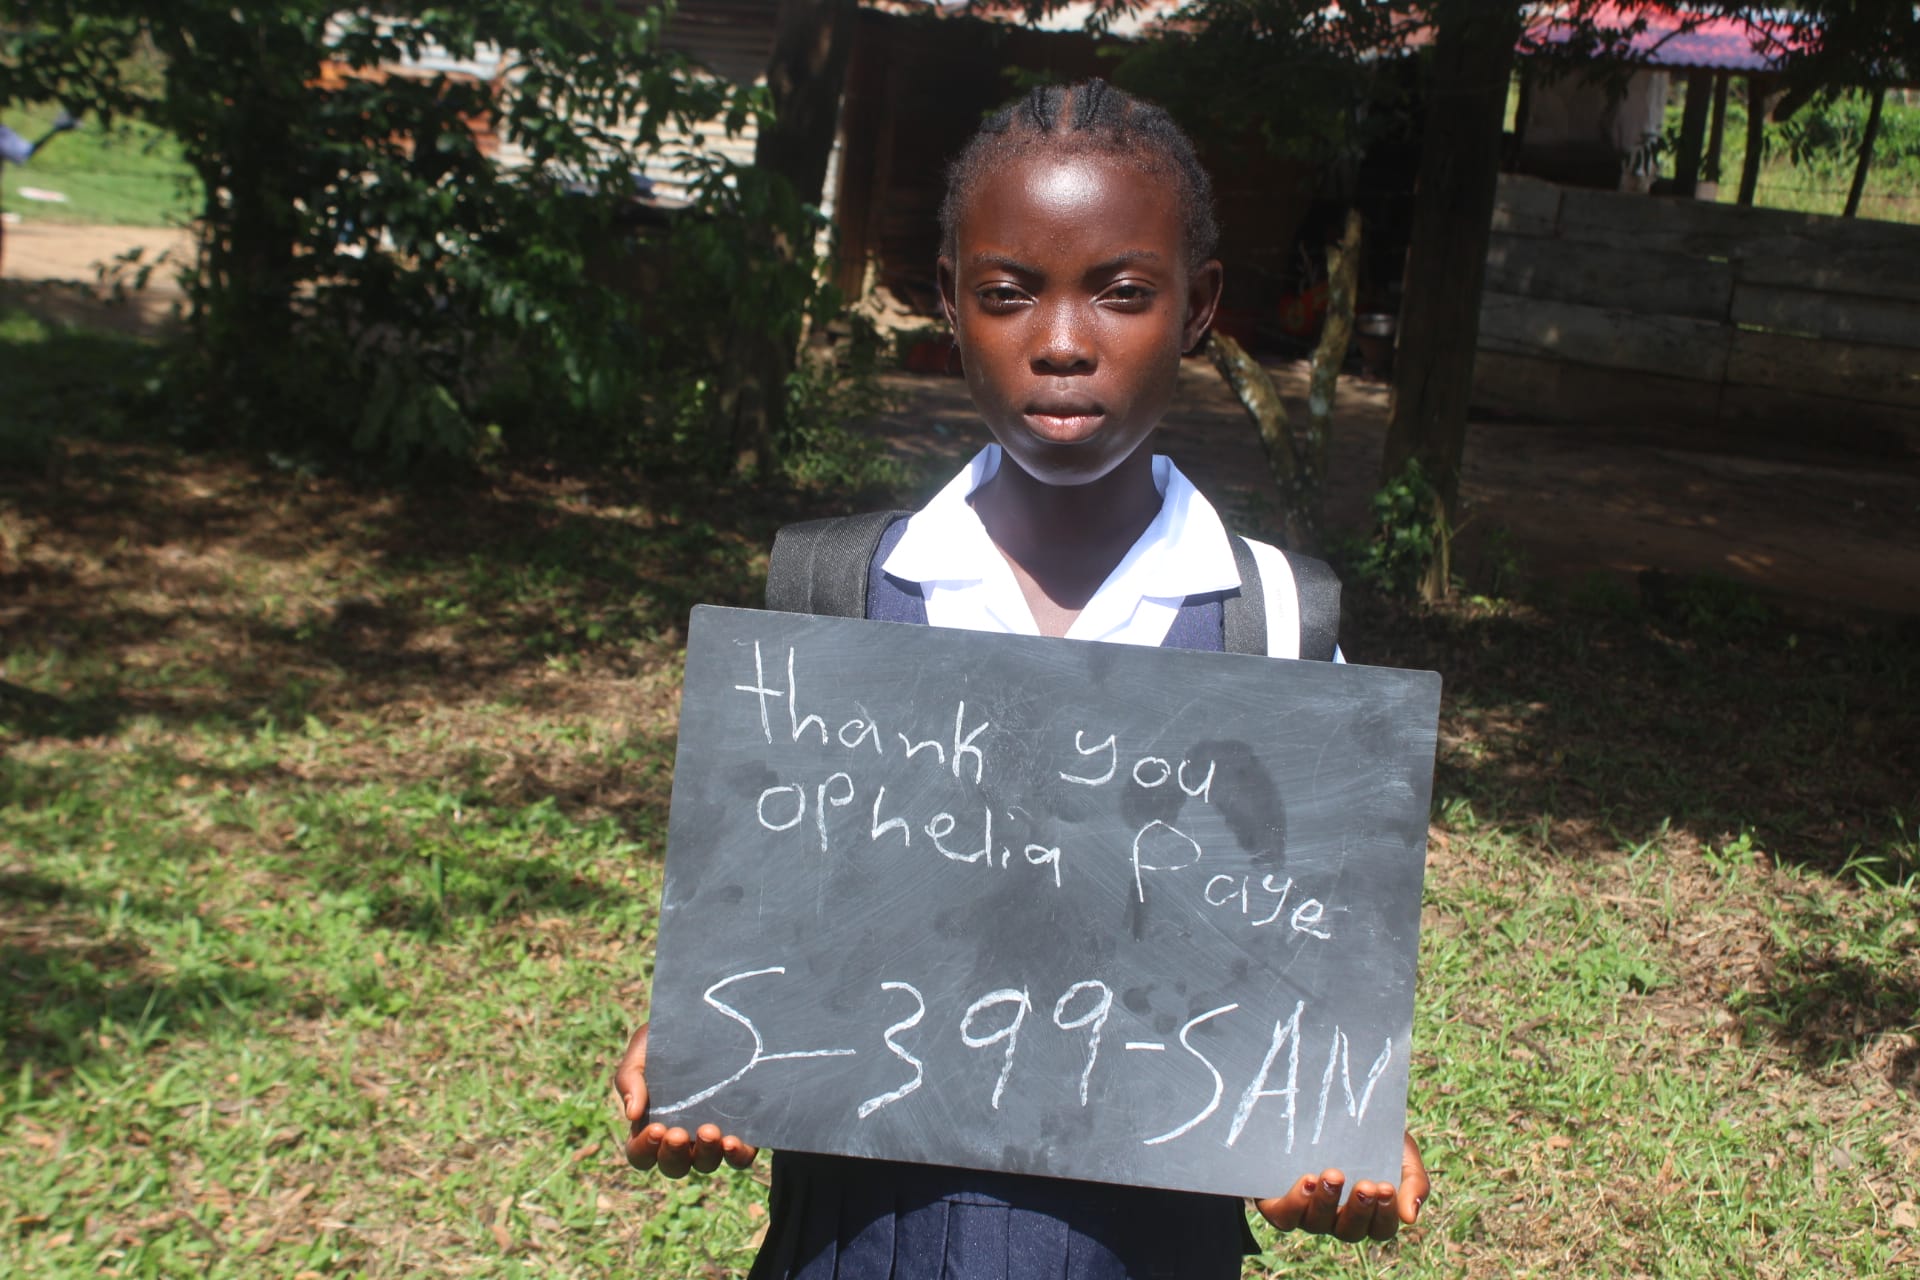 thank you
ophelia Paye
S-399-SAN